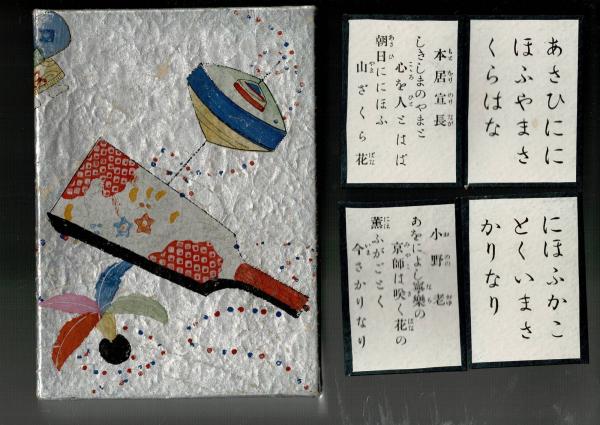 本居宣長
しきしまのやまと
心を人とはば
朝日ににほふ
山ざくら花
あさひにに
ほふやまさ
くらはな
小野老
あをによし寧樂の
京師は咲く花の
薫ふがごとく
今さかりなり
にほふかこ
とくいまさ
かりなり